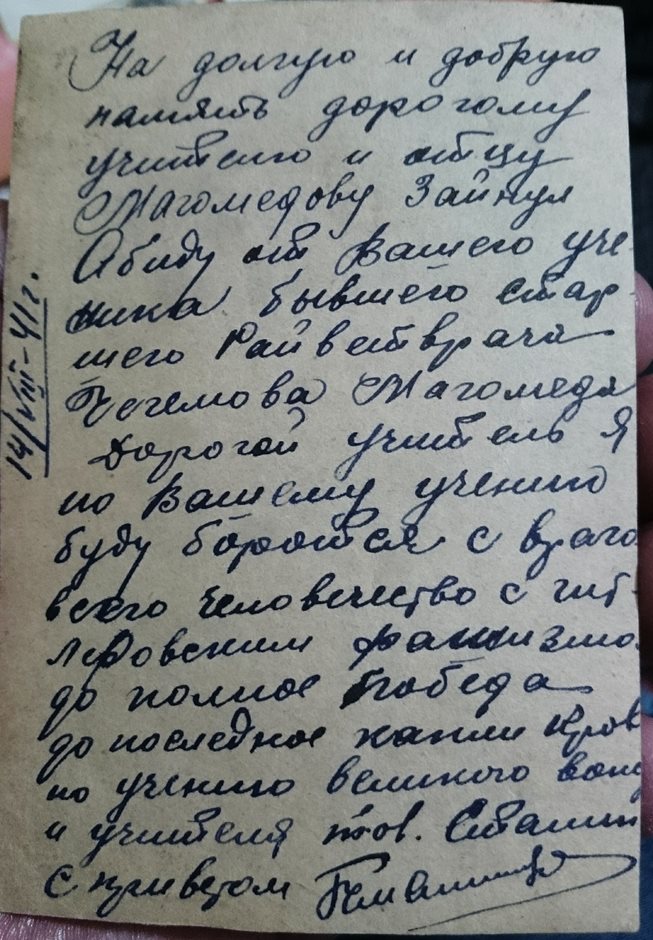 На долгую и добрую
память дорогому
учителю и отцу
Магомедову Зайнул
Абиду от Вашего уче-
ника бывшего стар
шего Райветврача
Магомеда
Дорогой учитель Я
по Вашему учению
буду боротся с враго
всего человечество с гит-
леровским фашизмо
до полное победа
до последное капли кров
по учению великого вожд
и учителя тов. Сталин
с приветом
14/VIII-41г.